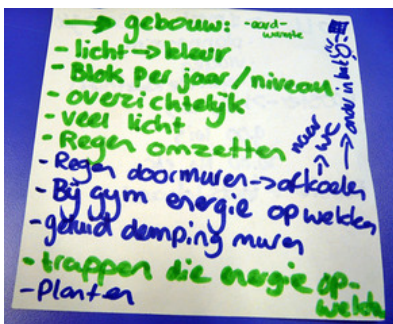 → gebouw: -aard-
warmte
- licht → kleur
- Blok per jaar/niveau
- overzichtelijk
- veel licht
- Regen omzetten naar
→ wc
- Regen door muren → afkoelen
- Bij gym energie opwekken
- geluid demping muren
- trappen die energie op-
wekken
- Planten
→ onder in het